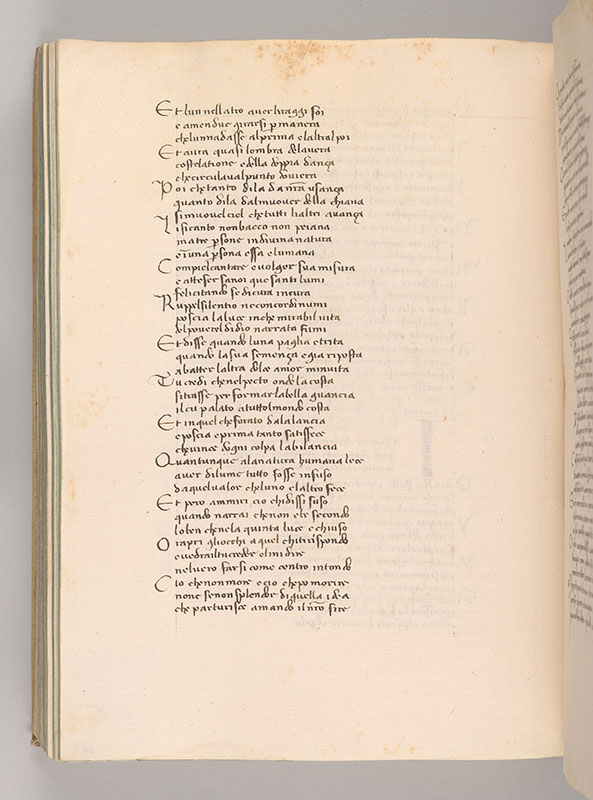 Et lun nellatro aver li raggi soi
e amendue girarsi p manera
che lunnadasse al prima elaltral poi
Et aura quasi lombra dela vera
costelatione e della doppia dança
che circulaval punto doviera
Poi che tanto di la da nr̄a usança
quanto di la dal muover della chiana
si muovel ciel che tutti li altri avança
Li si canto non bacco non peiana
ma tre psone in divina natura
e ī una psona essa e lumana
Compiel cantare e volger sua misura
e attesersanoi que santi lumi
felicitando se di cura in cura
Ruppel silentio ne concordi numi
poscia la luce in che mirabil vita
del poverel di dio narrata fumi
Et disse quando luna paglia e trita
quando la sua semença e gia riposta
a batter laltra dolce amor minvita
Tu credi che nel pecto onde la costa
si trasse per formar la bella guancia
il cui palato a tuttol mondo costa
Et in quel che forato da la lancia
e poscia e prima tanto satisfece
che vince dogni colpa la bilancia
Quantunque a la natura humana lece
aver di lume tutto fosse infuso
da quel valor che luno e laltro fece
Et pero ammiri cio chi dissi suso
quando narrai che non ebe secondo
lo ben che ne la quinta luce e chiuso
Or apri gliocchi a quel chi ti rispondo
e vedrai il tu credere el mi dire
nel vero farsi come centro in tondo
Cio che non more e cio che po morire
non e se non splendor di quella idea
che parturisce amando il nr̄o sire